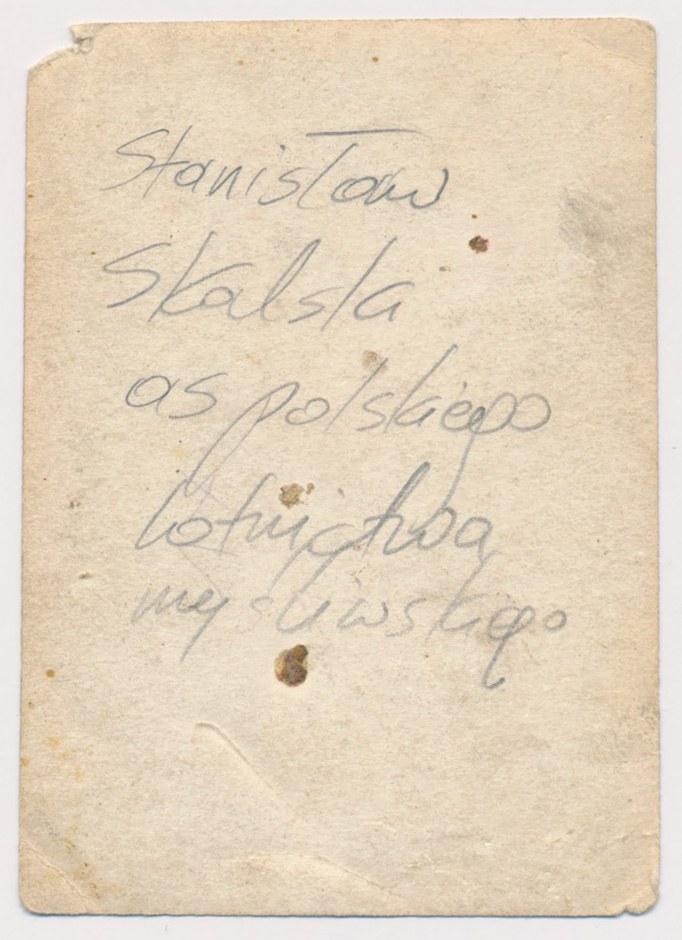 Stanisław
Skalski
as polskiego
lotnictwa
myśliwskiego